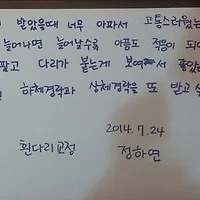 받았을때 너무 아파서 고통스러웠는
늘어나면 늘어날수록 아픔도 적응이 되
팠고 다리가 붙는게 보여서 좋았
하체경락과 상체경락을 또 받고
2014.7.24
휜다리교정 정하연